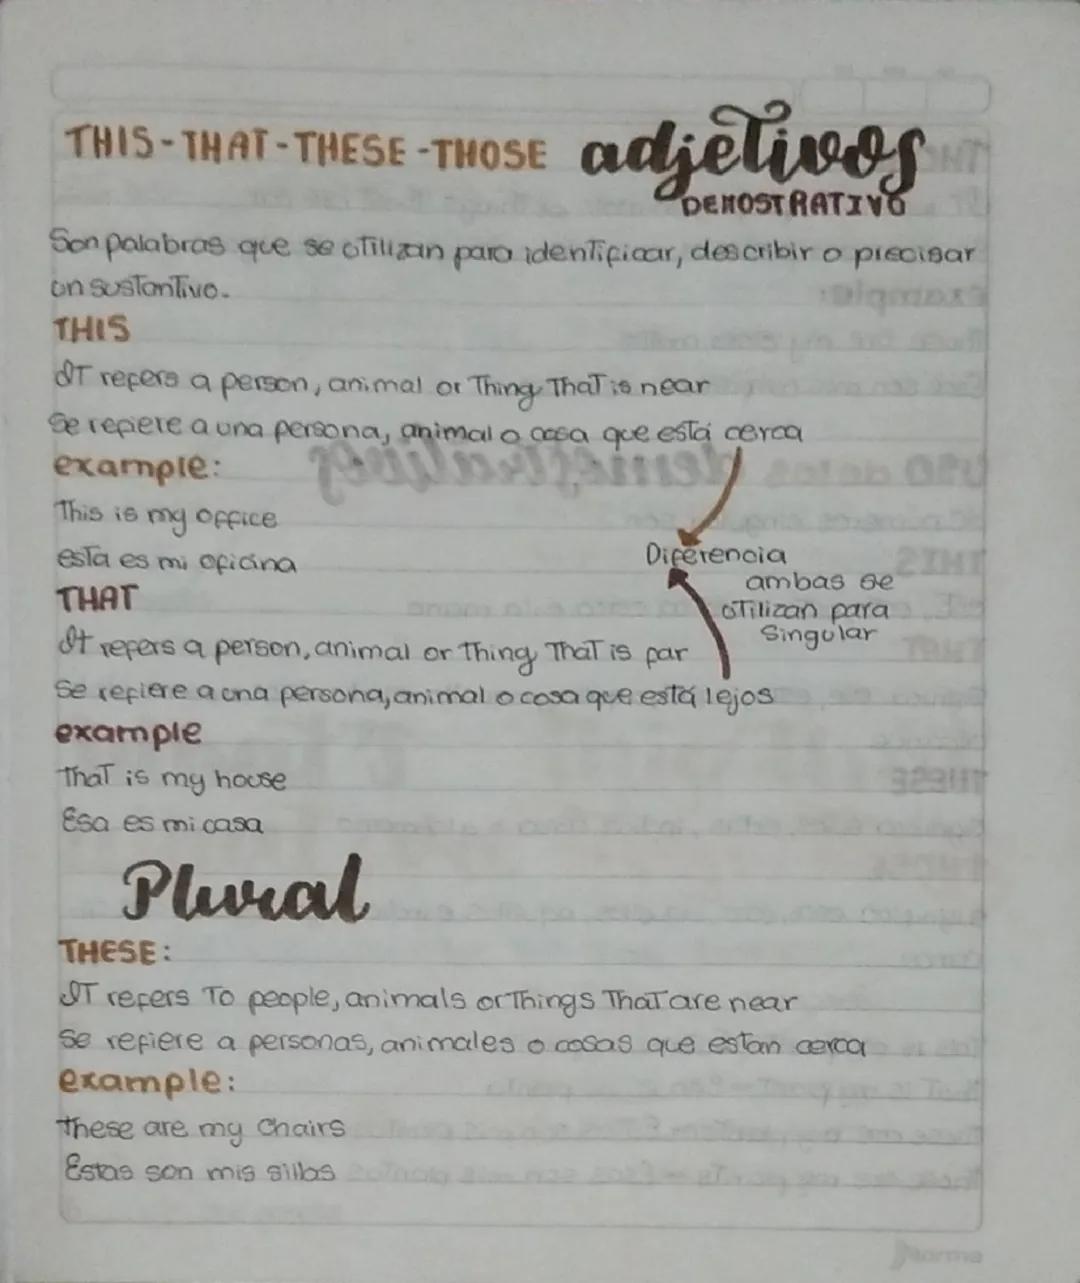 THIS-THAT-THESE-THOSE adjetivos
DEMOSTRATIVO
Son palabras que se utilizan para identificar, describir o precisar
un sustantivo.
THIS
IT refers a person, animal or Thing That is near
Se refiere a una persona, animal o cosa que está cerca
example:
This is my office
esta es mi oficina
Diferencia
ambas se
utilizan para
Singular
THAT
It refers a person, animal or Thing That is far
Se refiere a una persona, animal o cosa que está lejos
example
That is my house
Esa es mi casa
Plural
THESE:
IT refers To people, animals or Things That are near
Se refiere a personas, animales o cosas que estan cerca
example:
These are my Chairs
Estas son mis sillas
norma